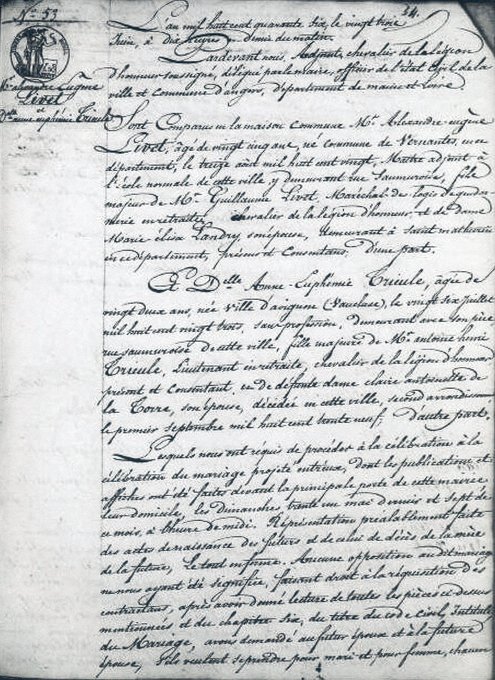 N.° 53
24.
Mr. Alexandre Eugène
Livet
et
Dlle. anne euphémie Trieule
L'an mil huit cent quarante six, le vingt trois
Juin, à dix heures & demie du matin.
Pardevant nous, Adjoint, chevalier de la légion
d'honneur soussigné, délégué par le maire, officier de l'état Civil de la
ville et commune d'angers, département de maine et loire.
Sont Comparus en la maison Commune Mr. Alexandre-eugène
Livet, âgé de vingt cinq ans, né commune de Vernantes, en ce
département, le treize août mil huit cent vingt, Maître adjoint à
l'école normale de cette ville y demeurant rue Saumuroise, fils
majeur de Mr. Guillaume Livet, Maréchal de logis de gendar
merie en retraite, chevalier de la légion d'honneur, et de dame
Marie élisa Landry son épouse, demeurant à Saint mathurin
en ce département, présens et Consentans, d'une part.
Et Delle Anne-Euphémie Trieule, âgée de
vingt deux ans, née Ville d'avignon (Vaucluse), le vingt six Juillet
mil huit cent vingt trois, sans profession, demeurant avec son père
rue saumuroise de cette ville, fille majeure de Mr. antoine henri
Trieule, Lieutenant en retraite, chevalier de la légion d'honneur
présent et Consentant, et de défunte dame claire antoinette de
la Torre, son épouse, décédée en cette ville, second arrondissmt
le premier septembre mil huit cent trente neuf; d'autre part.
Lesquels nous ont réquis de procéder à la célébration à la
célébration du mariage projeté entr'eux, dont les publications et
affiches ont été faites devant la principale porte de cette mairie
leur domicile, les Dimanches trente un mai dernier et sept de
ce mois, à l'heure de midi. Réprésentation préalablement faite
des actes de naissance des futurs et de celui de décès de la mère
de la future, le tout en forme. Aucune opposition au dit mariage
ne nous ayant été signifiée, faisant droit à la réquisition des
contractans, après avoir donné lecture de toutes les pièces ci dessus
mentionnées et du chapitre six, du titre du code civil, Intitulé
du Mariage, avons demandé au futur époux et à la future
épouse, s'ils veulent se prendre pour mari et pour femme, chacun